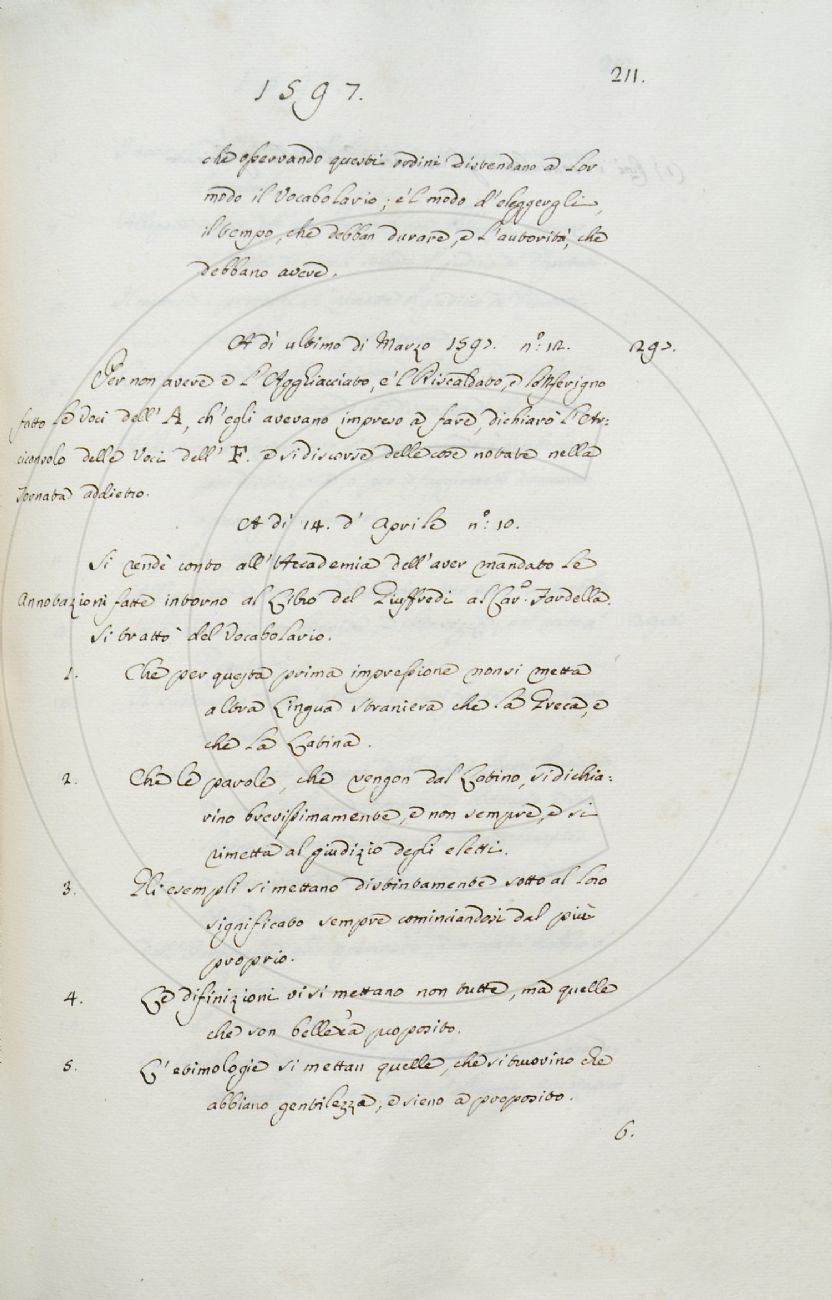 211.
1597.
che osservando questi ordini distendano a lor
modo il Vocabolario; e 'l modo d'eleggergli,
il tempo, che debban durare, e l'autorità, che
debbano avere.
A dì ultimo di Marzo 1597. n.º 12. 297.
Per non avere e l'Agghiacciato, e 'l Riscaldato, e lo 'Nferigno
fatto le Voci dell'A, ch'egli avevano impreso a fare, dichiarò l'Ar:
ciconsolo delle Voci dell'F. e si discorse delle cose notate nella
Tornata addietro.
A dì 14. d'Aprile n.º 10.
Si rendè conto all'Accademia dell'aver mandato le
Annotazioni fatte intorno al Libro del Giuffredi al Cav.º Fardella.
Si trattò del Vocabolario.
1. Che per questa prima impressione non si metta
altra Lingua straniera che la Greca, e
che la Latina.
2. Che le parole, che vengon dal Latino, si dichia:
rino brevissimamente, e non sempre, e si
rimetta al giudizio degli eletti.
3. Gli esempli si mettano distintamente sotto al loro
significato sempre cominciandosi dal più
proprio.
4. Le difinizioni vi si mettano non tutte, ma quelle
che son belle e a proposito.
5. L'etimologie si mettan quelle, che si truovino che
abbiano gentilezza, e sieno a proposito.
6.